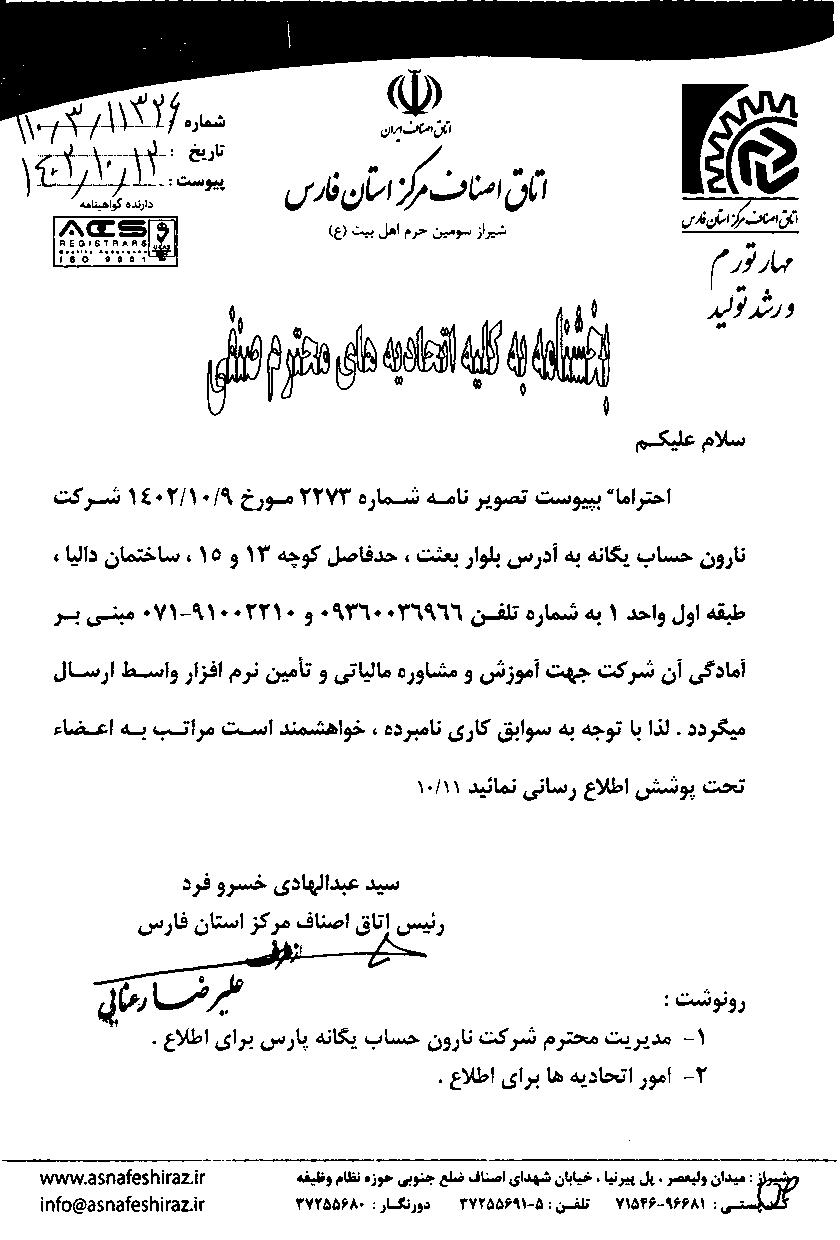 شماره ۱۱۰/۳/۱۱۳۲۶
تاریخ : ۱۴۰۲/۱۰/۱۲
پیوست :
دارنده گواهینامه
ACS
REGISTRARS
ISO 9001
اتاق اصناف ایران
اتاق اصناف مرکز استان فارس
شیراز سومین حرم اهل بیت (ع)
اتاق اصناف مرکز استان فارس
مهار تورم
و رشد تولید
بخشنامه به کلیه اتحادیه های محترم صنفی
سلام علیکم
احتراما" بپیوست تصویر نامه شماره ۲۲۷۳ مورخ ۱۴۰۲/۱۰/۹ شرکت
نارون حساب یگانه به آدرس بلوار بعثت ، حدفاصل کوچه ۱۳ و ۱۵ ، ساختمان دالیا ،
طبقه اول واحد ۱ به شماره تلفن ۰۹۳۶۰۰۳۶۹۶۶ و ۹۱۰۰۲۲۱۰-۰۷۱ مبنی بر
آمادگی آن شرکت جهت آموزش و مشاوره مالیاتی و تأمین نرم افزار واسط ارسال
میگردد . لذا با توجه به سوابق کاری نامبرده ، خواهشمند است مراتب به اعضاء
تحت پوشش اطلاع رسانی نمائید ۱۰/۱۱
سید عبدالهادی خسرو فرد
رئیس اتاق اصناف مرکز استان فارس
از طرف
علیرضا رعنایی
رونوشت :
۱- مدیریت محترم شرکت نارون حساب یگانه پارس برای اطلاع .
۲- امور اتحادیه ها برای اطلاع .
شیراز : میدان ولیعصر ، پل پیرنیا ، خیابان شهدای اصناف ضلع جنوبی حوزه نظام وظیفه
کدپستی : ۷۱۵۴۶-۹۶۶۸۱ تلفن : ۵-۳۷۲۵۵۶۹۱ دورنگار : ۳۷۲۵۵۶۸۰
www.asnafeshiraz.ir
info@asnafeshiraz.ir